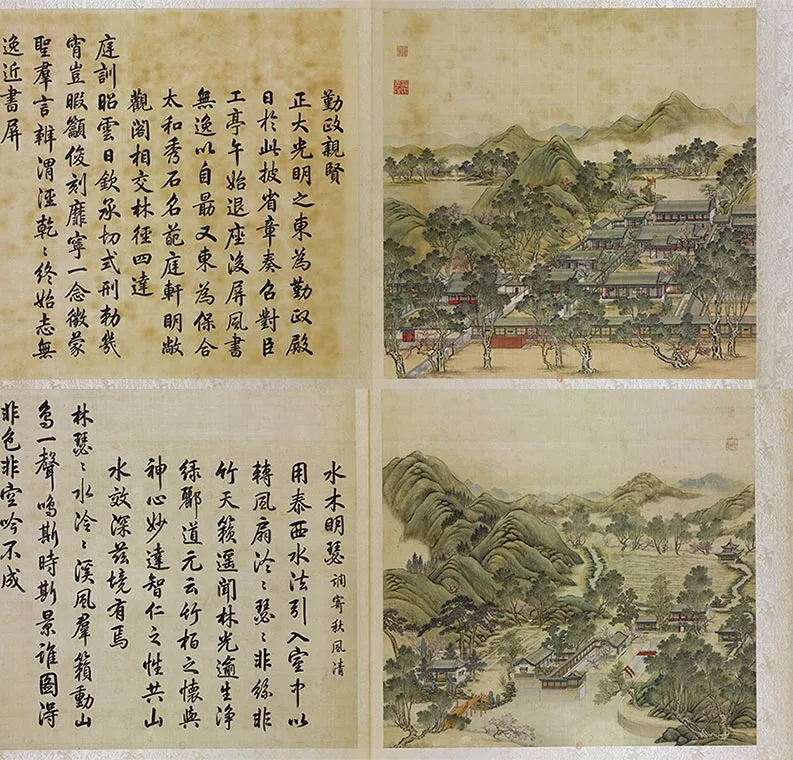 勤政親賢
正大光明之東為勤政殿
日於此披省章奏召對臣
工亭午始退座後屏風書
無逸以自勗又東為保合
太和秀石名葩庭軒明敞
觀閣相交林徑四達
庭訓昭雲日欽承切式刑勑幾
宵豈暇籲俊刻靡寧一念徵蒙
聖羣言辨渭涇乾〻終始志無
逸近書屏
水木明瑟 調寄秋風清
用泰西水法引入室中以
轉風扇泠〻瑟〻非絲非
竹天籟遥聞林光逾生淨
緑酈道元云竹柏之懷與
神心妙達智仁之性共山
水效深茲境有焉
林瑟〻水泠〻溪風羣籟動山
鳥一聲鳴斯時斯景誰圖得
非色非空吟不成